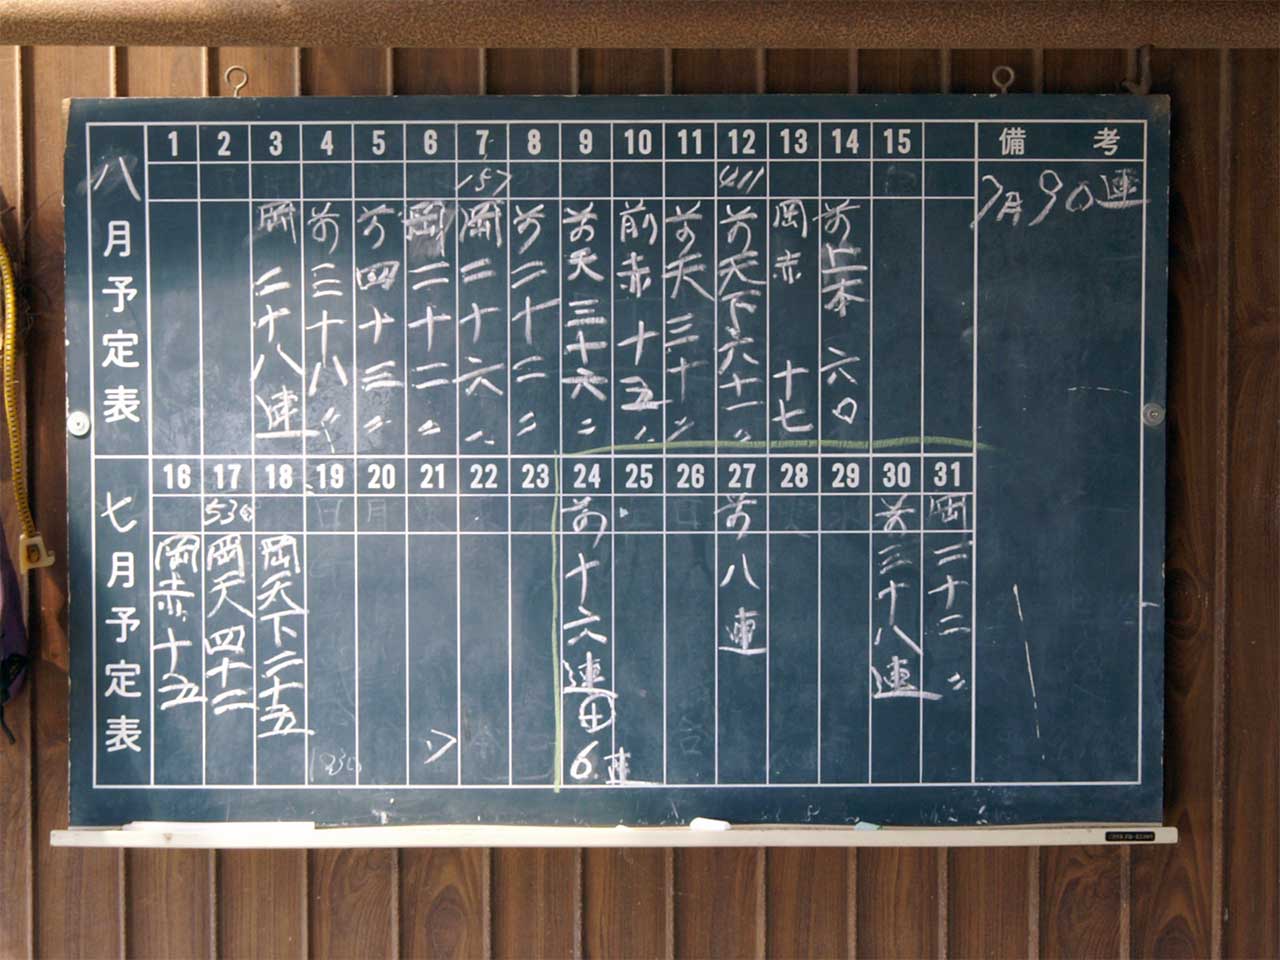 八月予定表
1 2 3 4 5 6 7 8 9 10 11 12 13 14 15 備考
157 411
7月90連
岡二十八連
前三十八〃
前四十三〃
岡二十二〃
岡二十六〃
前二十二〃
前天三十六〃
前赤十五〃
前天三十〃
前天下六十一〃
岡赤十七
前上本六〇
七月予定表
16 17 18 19 20 21 22 23 24 25 26 27 28 29 30 31
530
日 月
岡赤十五
岡天四十二
岡天下二十五
前十六連
田6連
前八連
前三十八連
岡二十二〃